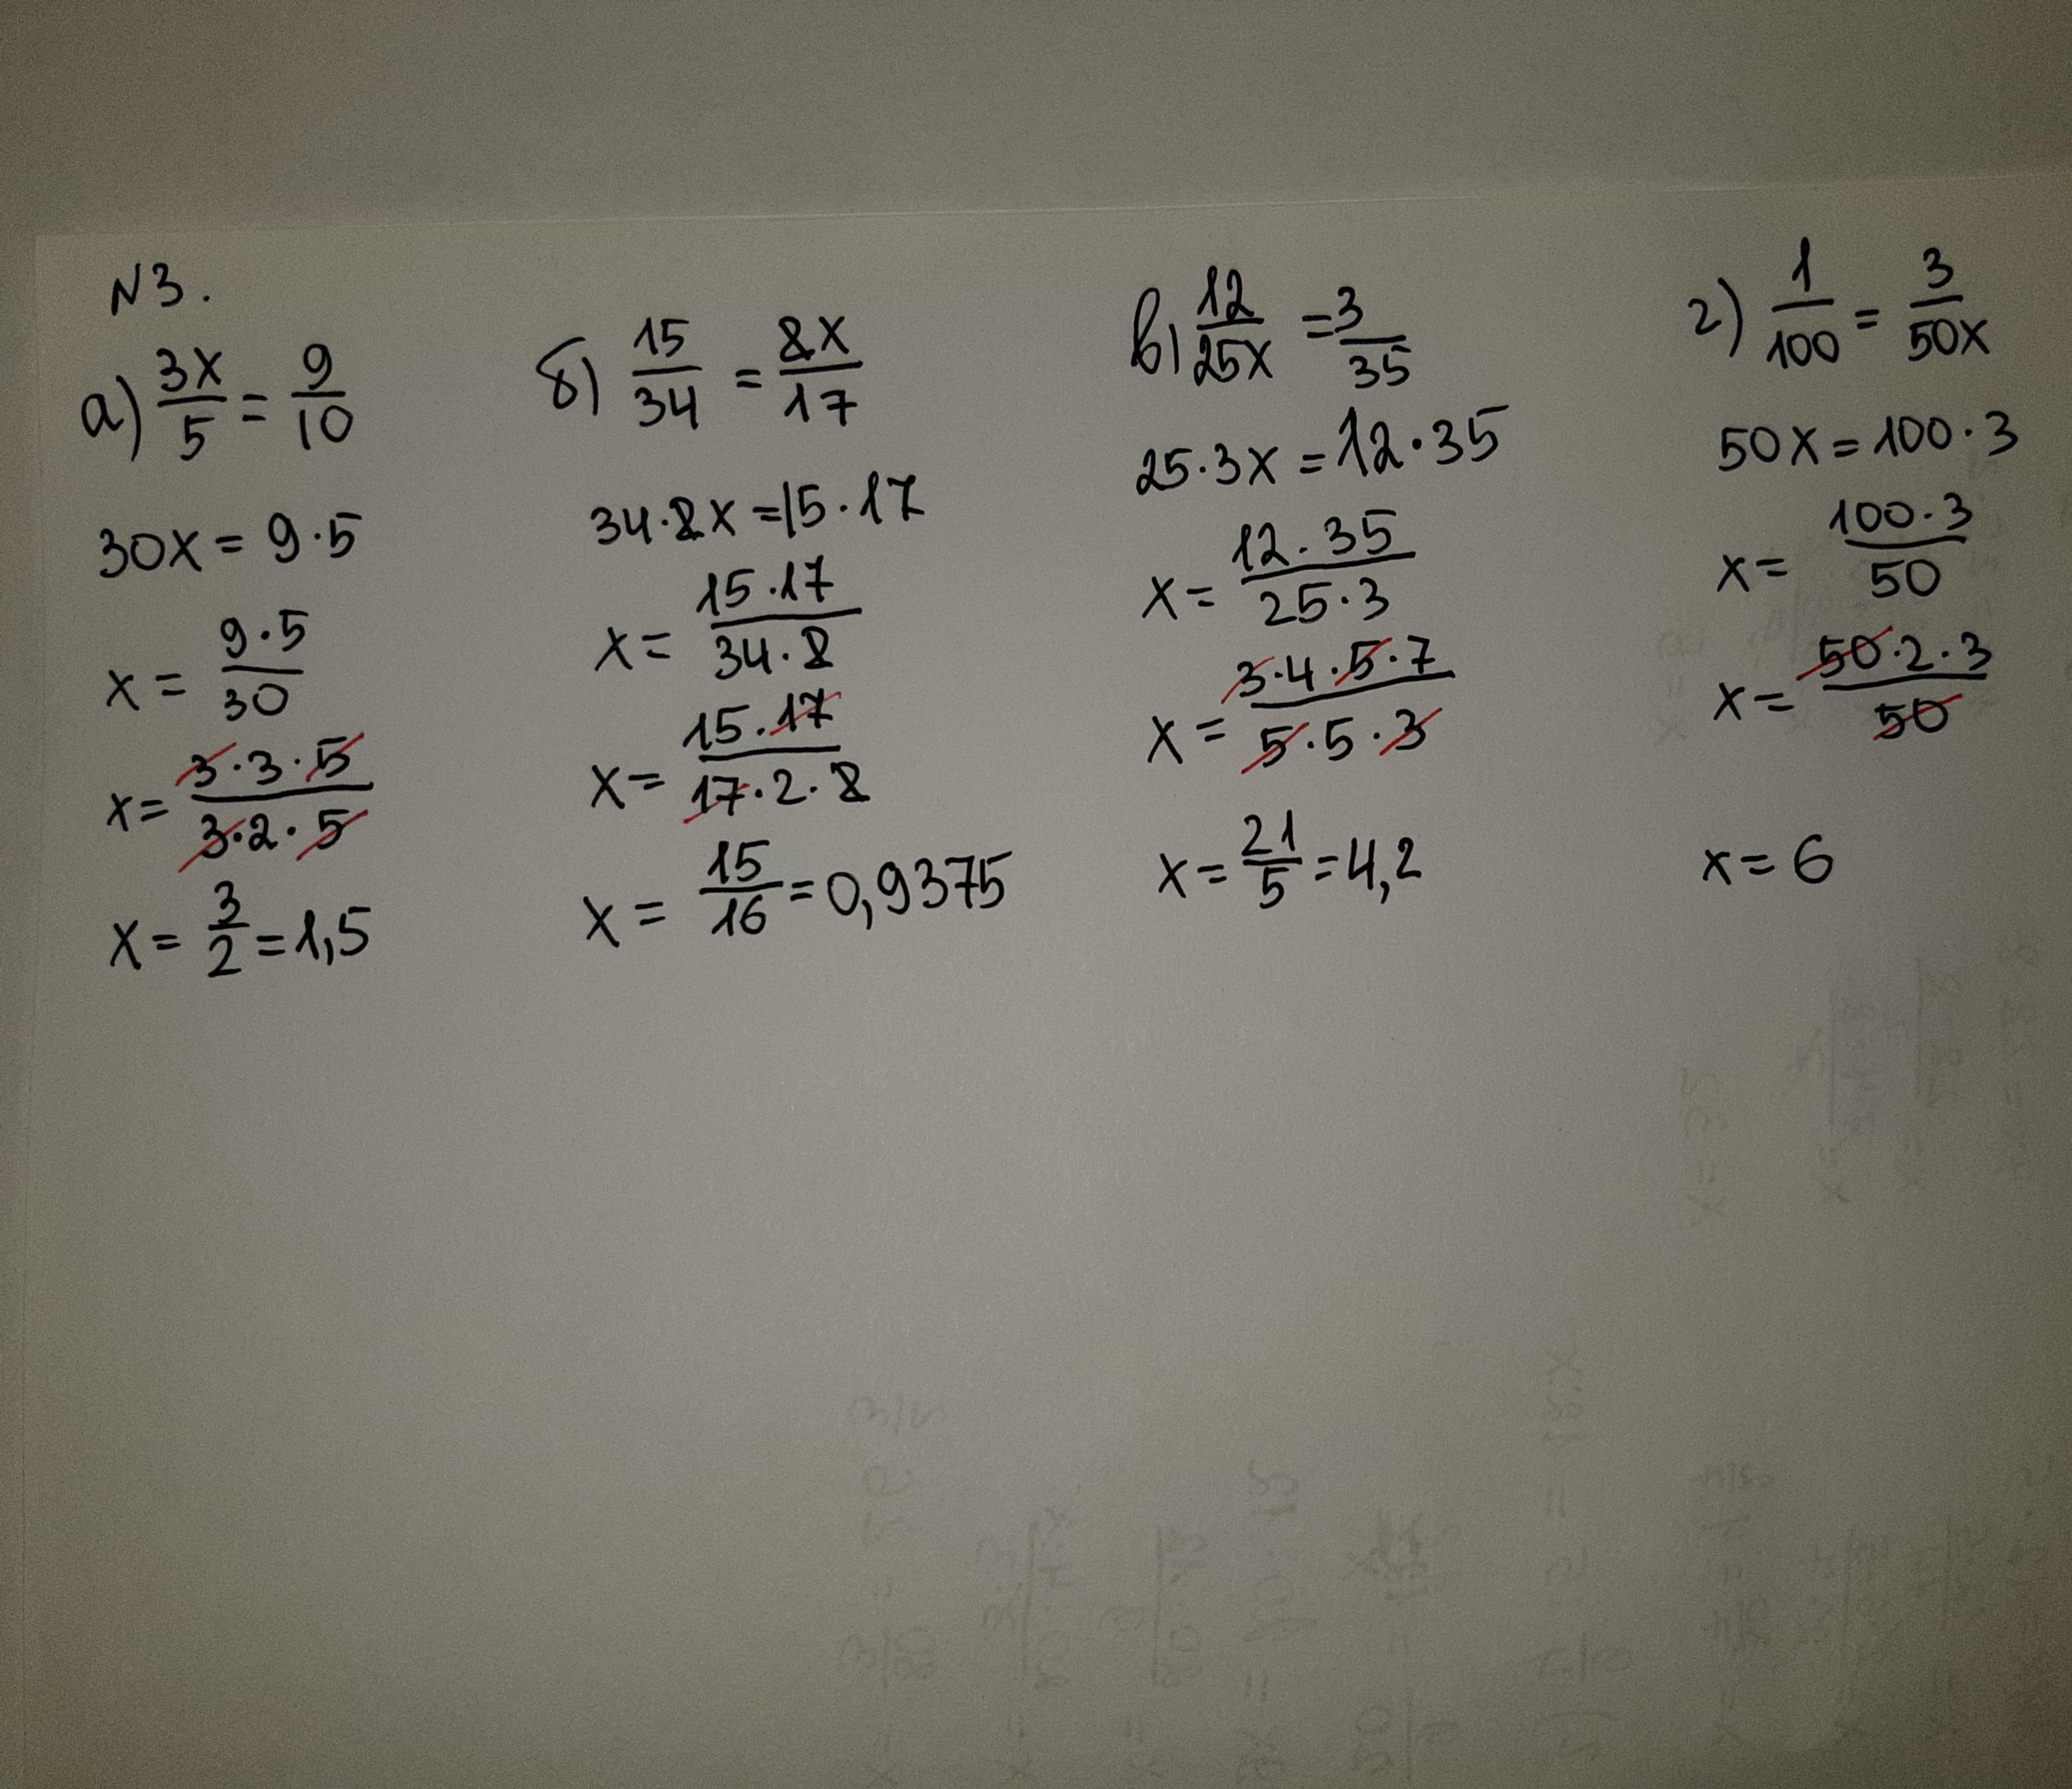 N3.
а) 3x/5 = 9/10
30x = 9·5
x = 9·5/30
x = 3·3·5/3·2·5
x = 3/2 = 1,5
б) 15/34 = 8x/17
34·8x = 15·17
x = 15·17/34·8
x = 15·17/17·2·8
x = 15/16 = 0,9375
в) 12/25x = 3/35
25·3x = 12·35
x = 12·35/25·3
x = 3·4·5·7/5·5·3
x = 21/5 = 4,2
г) 1/100 = 3/50x
50x = 100·3
x = 100·3/50
x = 50·2·3/50
x = 6